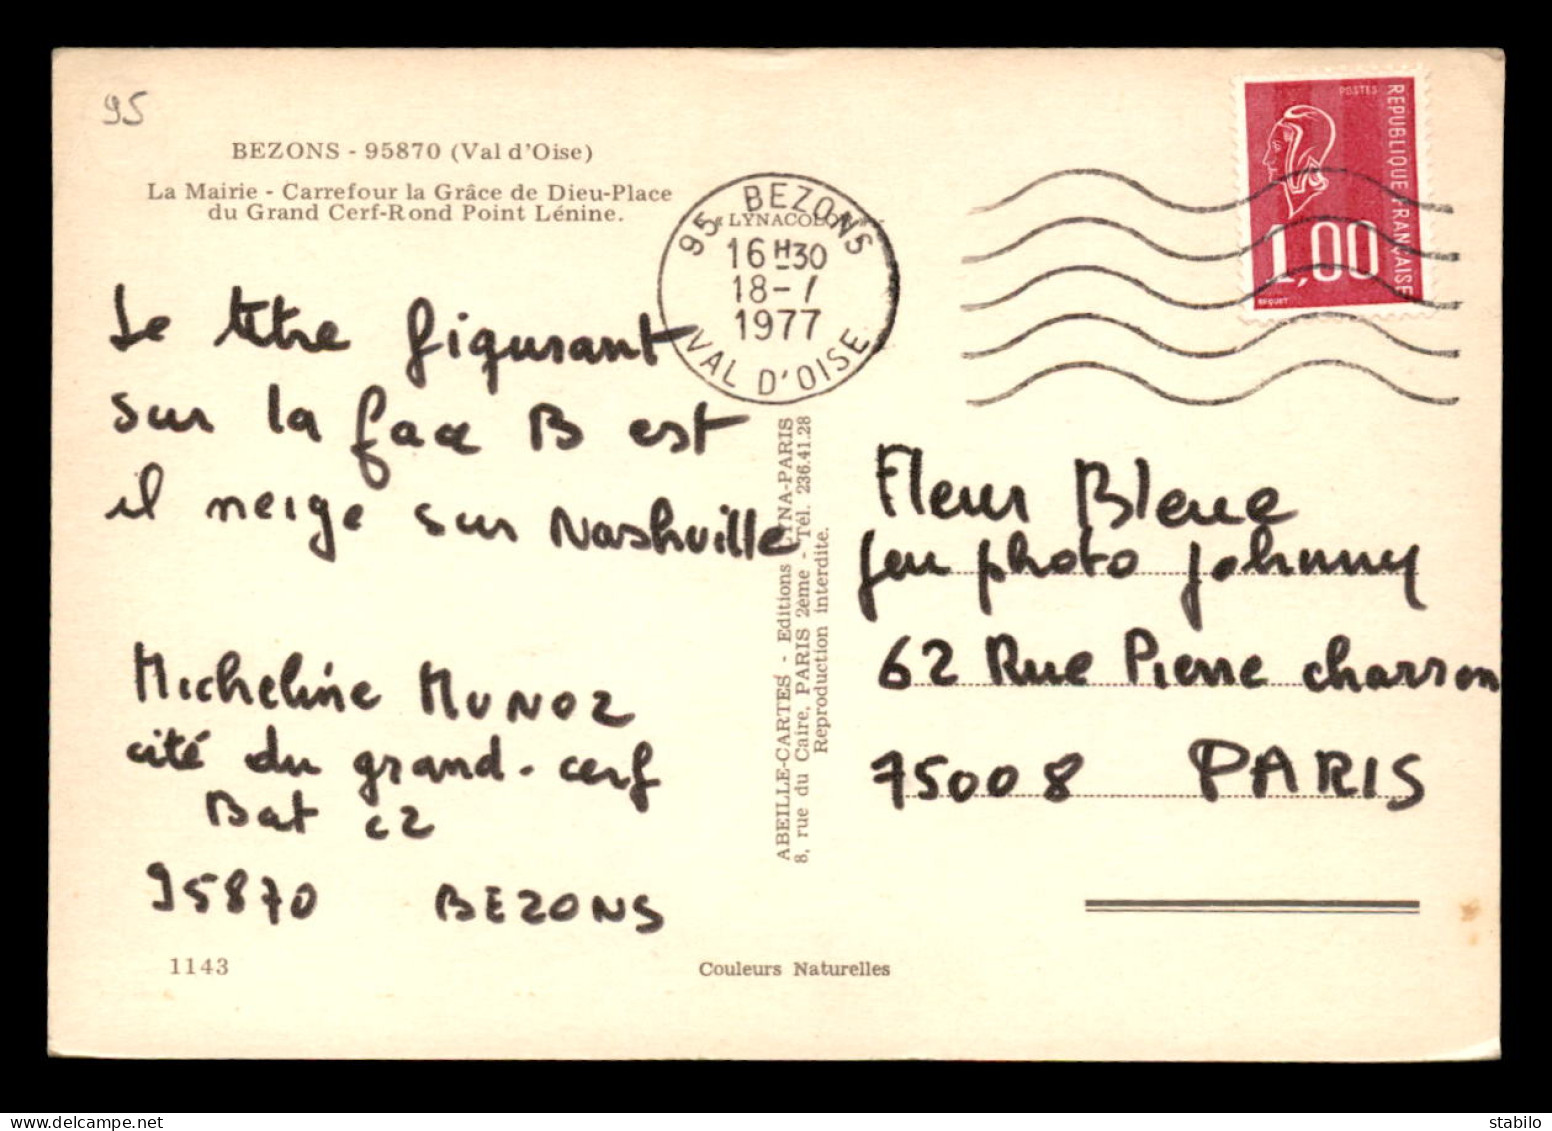 95
BEZONS - 95870 (Val d'Oise)
La Mairie - Carrefour la Grâce de Dieu-Place
du Grand Cerf-Rond Point Lénine.
95 BEZONS
16H30
18-7
1977
VAL D'OISE
POSTES
REPUBLIQUE FRANÇAISE
1,00
BEQUET
Le titre figurant
sur la face B est
il neige sur Nashville
Micheline MUNOZ
cité du grand-cerf
Bat C2
95870 BEZONS
1143
ABEILLE-CARTES - Editions LYNA-PARIS
8, rue du Caire, PARIS 2ème - Tél. 236.41.28
Reproduction interdite.
Couleurs Naturelles
Fleur Bleue
Jeu photo Johnny
62 Rue Pierre charron
75008 PARIS
stabilo